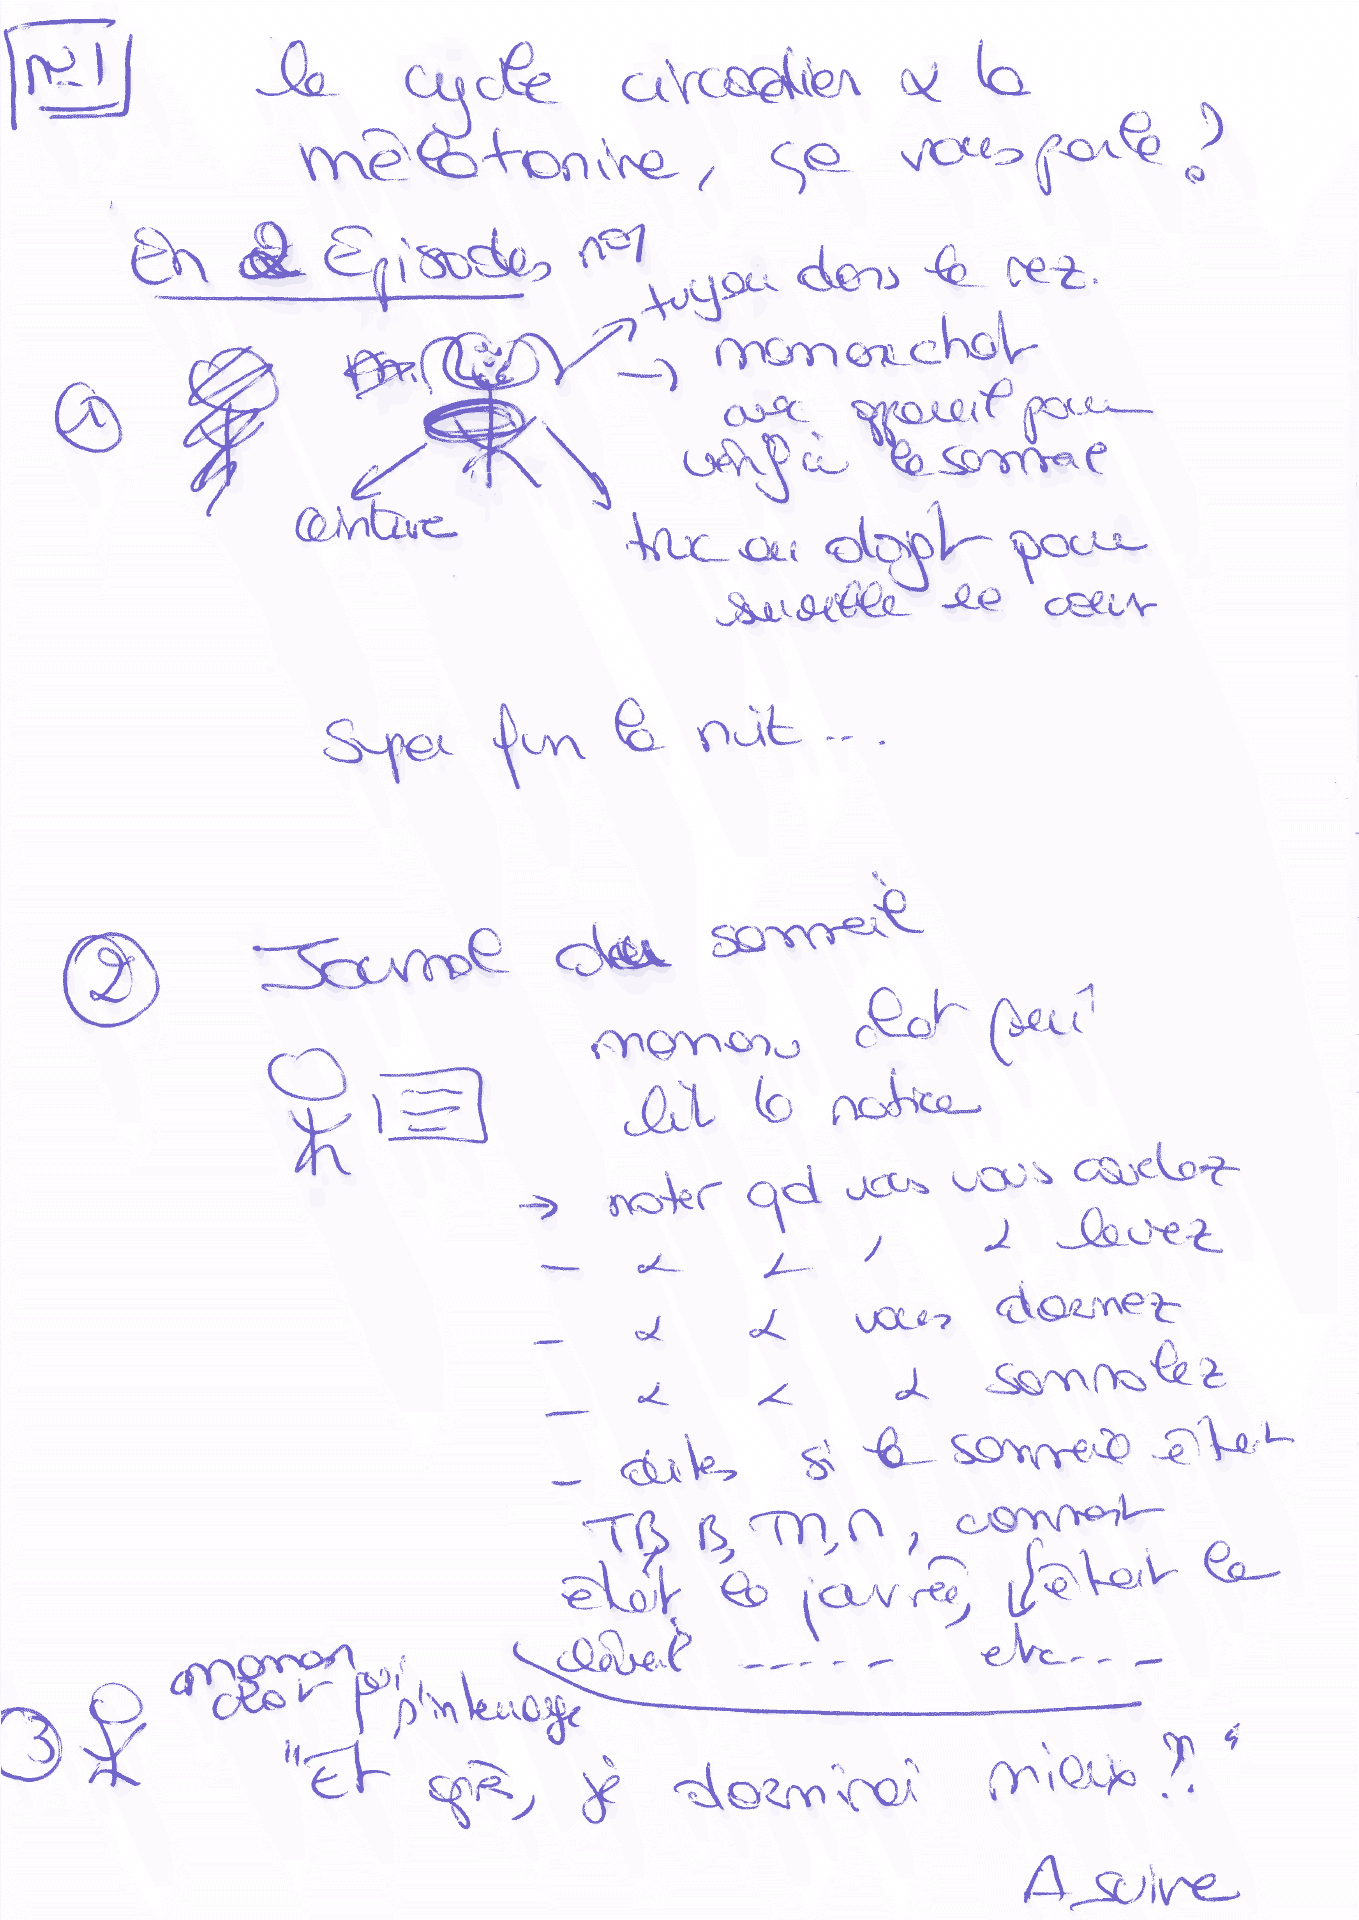 N°1
le cycle circadien & la
mélatonine, ça vous parle ?
En 2 Episodes n°1
tuyau dans le nez.
①
→ maman chat
avec appareil pour
vérifier le sommeil
ceinture
truc au doigt pour
surveiller le cœur
Super fun la nuit ...
②
Journal du sommeil
maman chat qui
lit la notice
→ noter qd vous vous couchez
levez
vous dormez
somnolez
- dites si le sommeil était
TB, B, M, comment
était la journée, était le
réveil ----- etc ---
maman
chat qui
s'interroge
③
"Et après, je dormirai mieux ?"
A suivre